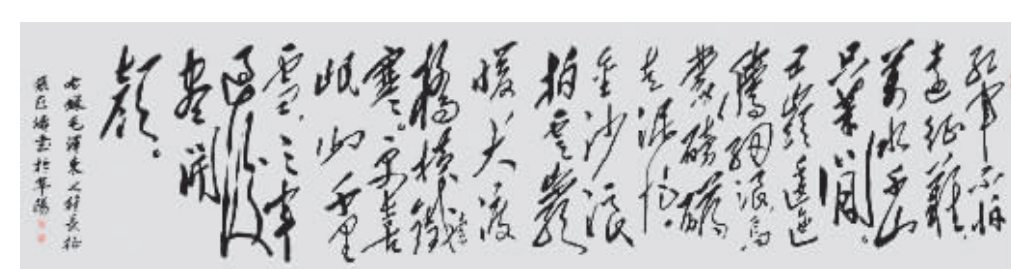 紅軍不怕
遠征難
萬水千山
只等閒。
五嶺逶迤
騰細浪烏
蒙磅礴
走泥丸。
金沙浪
拍雲崖
暖大渡
橋橫鐵索
寒。更喜
岷山千里
雪三軍
過後
盡開
顏。
右録毛澤東七律長征
書於阜陽